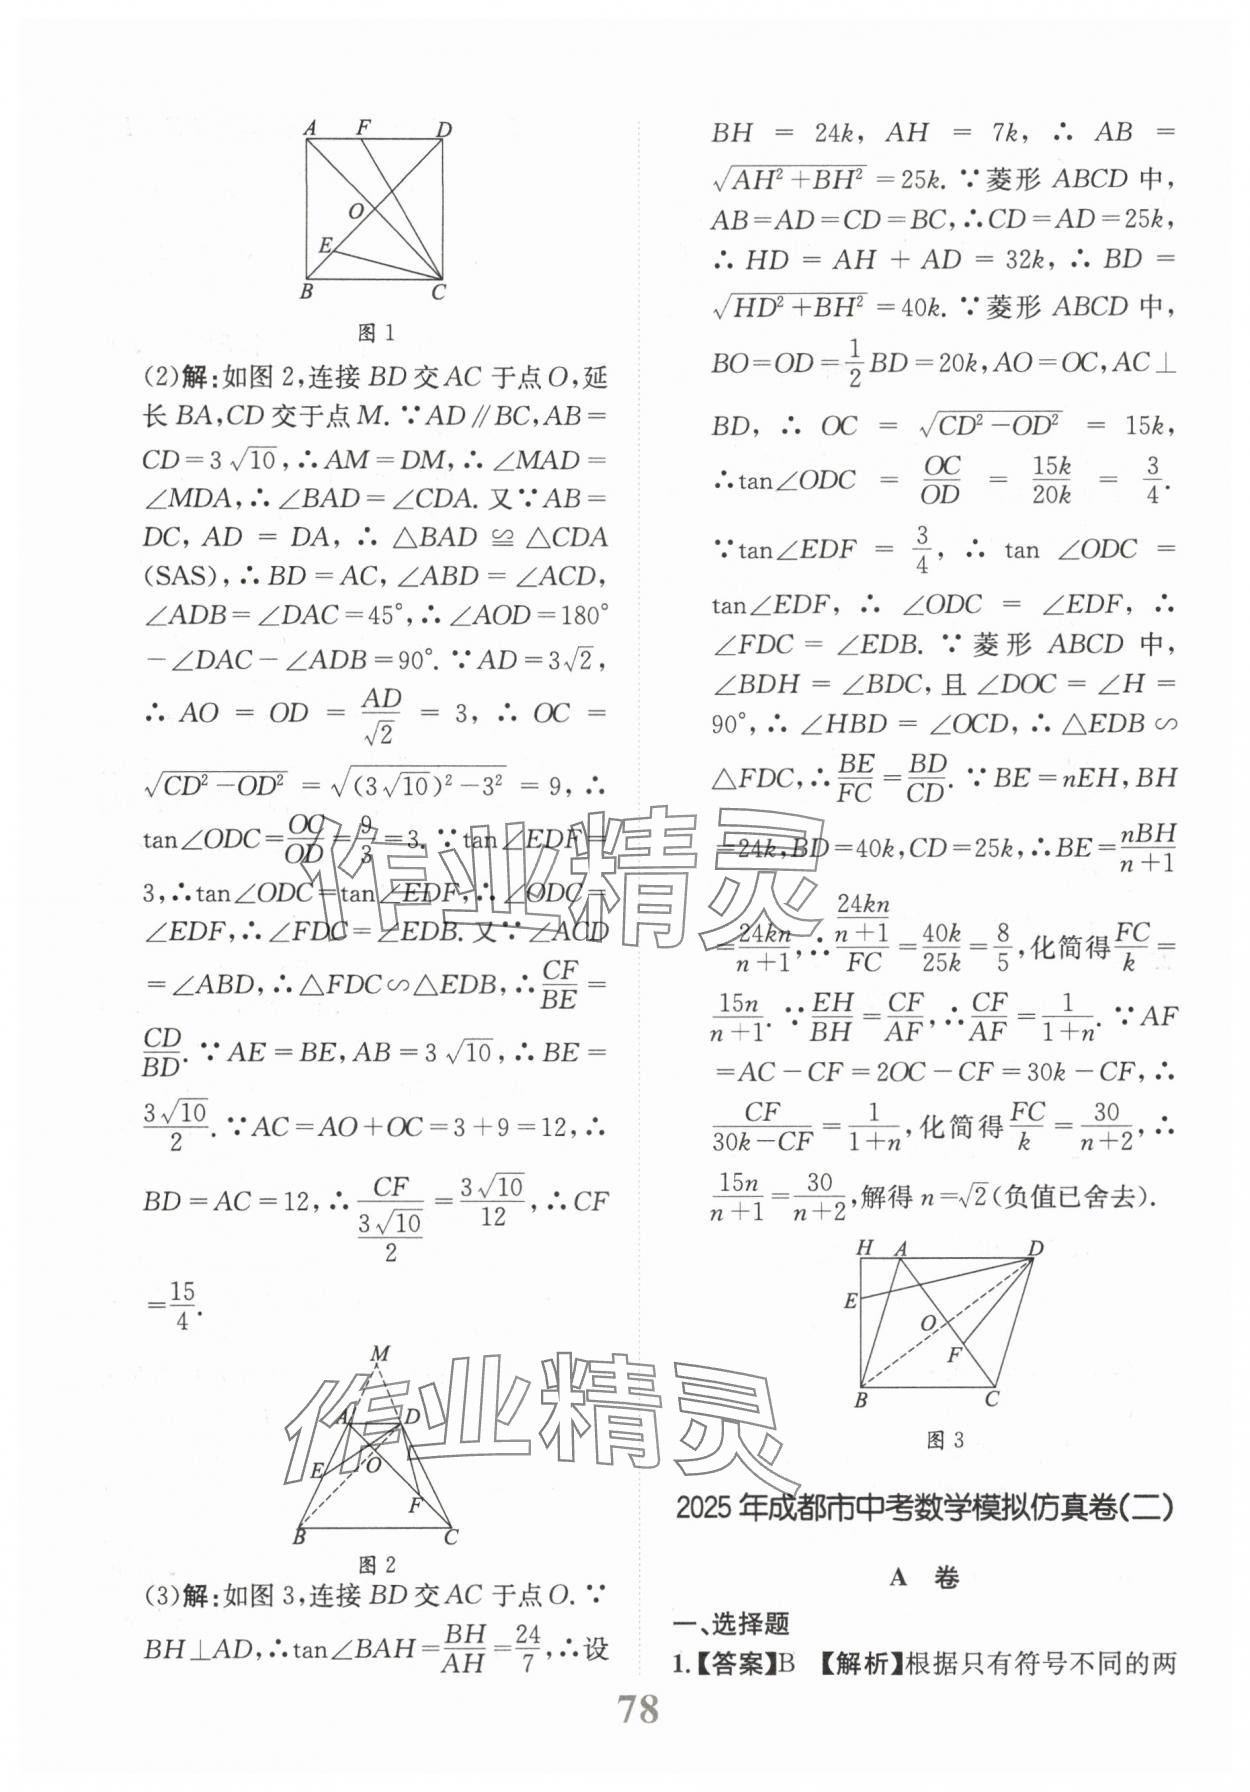 A F D
O
E
B C
图 1
(2)解:如图 2,连接 BD 交 AC 于点 O,延
长 BA,CD 交于点 M. ∵AD∥BC,AB=
CD=3√10,∴AM=DM,∴∠MAD=
∠MDA,∴∠BAD=∠CDA. 又∵AB=
DC, AD = DA, ∴ △BAD ≌ △CDA
(SAS),∴BD=AC,∠ABD=∠ACD,
∠ADB=∠DAC=45°,∴∠AOD=180°
-∠DAC-∠ADB=90°. ∵AD=3√2,
∴ AO = OD = AD/√2 = 3, ∴ OC =
√(CD²-OD²) = √((3√10)²-3²) = 9, ∴
tan∠ODC=OC/OD=9/3=3. ∵tan∠EDF=
3,∴tan∠ODC=tan∠EDF,∴∠ODC=
∠EDF,∴∠FDC=∠EDB. 又∵∠ACD
=∠ABD,∴△FDC∽△EDB,∴CF/BE=
CD/BD. ∵AE=BE,AB=3√10,∴BE=
3√10/2. ∵AC=AO+OC=3+9=12,∴
BD=AC=12,∴CF/(3√10/2)=3√10/12,∴CF
=15/4.
M
A D
E O
F
B C
图 2
(3)解:如图 3,连接 BD 交 AC 于点 O. ∵
BH⊥AD,∴tan∠BAH=BH/AH=24/7,∴设
BH = 24k, AH = 7k, ∴ AB =
√(AH²+BH²)=25k. ∵菱形 ABCD 中,
AB=AD=CD=BC,∴CD=AD=25k,
∴ HD = AH + AD = 32k, ∴ BD =
√(HD²+BH²)=40k. ∵菱形 ABCD 中,
BO=OD=1/2BD=20k,AO=OC,AC⊥
BD, ∴ OC = √(CD²-OD²) = 15k,
∴tan∠ODC = OC/OD = 15k/20k = 3/4.
∵tan∠EDF = 3/4, ∴ tan ∠ODC =
tan∠EDF, ∴ ∠ODC = ∠EDF, ∴
∠FDC = ∠EDB. ∵ 菱形 ABCD 中,
∠BDH = ∠BDC, 且 ∠DOC = ∠H =
90°, ∴ ∠HBD = ∠OCD, ∴ △EDB ∽
△FDC,∴BE/FC=BD/CD. ∵BE=nEH,BH
=24k,BD=40k,CD=25k,∴BE=nBH/(n+1)
=24kn/(n+1),∴(24kn/(n+1))/FC=40k/25k=8/5,化简得FC/k=
15n/(n+1). ∵EH/BH=CF/AF,∴CF/AF=1/(1+n). ∵AF
=AC-CF=2OC-CF=30k-CF,∴
CF/(30k-CF)=1/(1+n),化简得FC/k=30/(n+2),∴
15n/(n+1)=30/(n+2),解得 n=√2(负值已舍去).
H A D
E
O
F
B C
图 3
2025 年成都市中考数学模拟仿真卷(二)
A 卷
一、选择题
1.【答案】B 【解析】根据只有符号不同的两
78
作业精灵
作业精灵